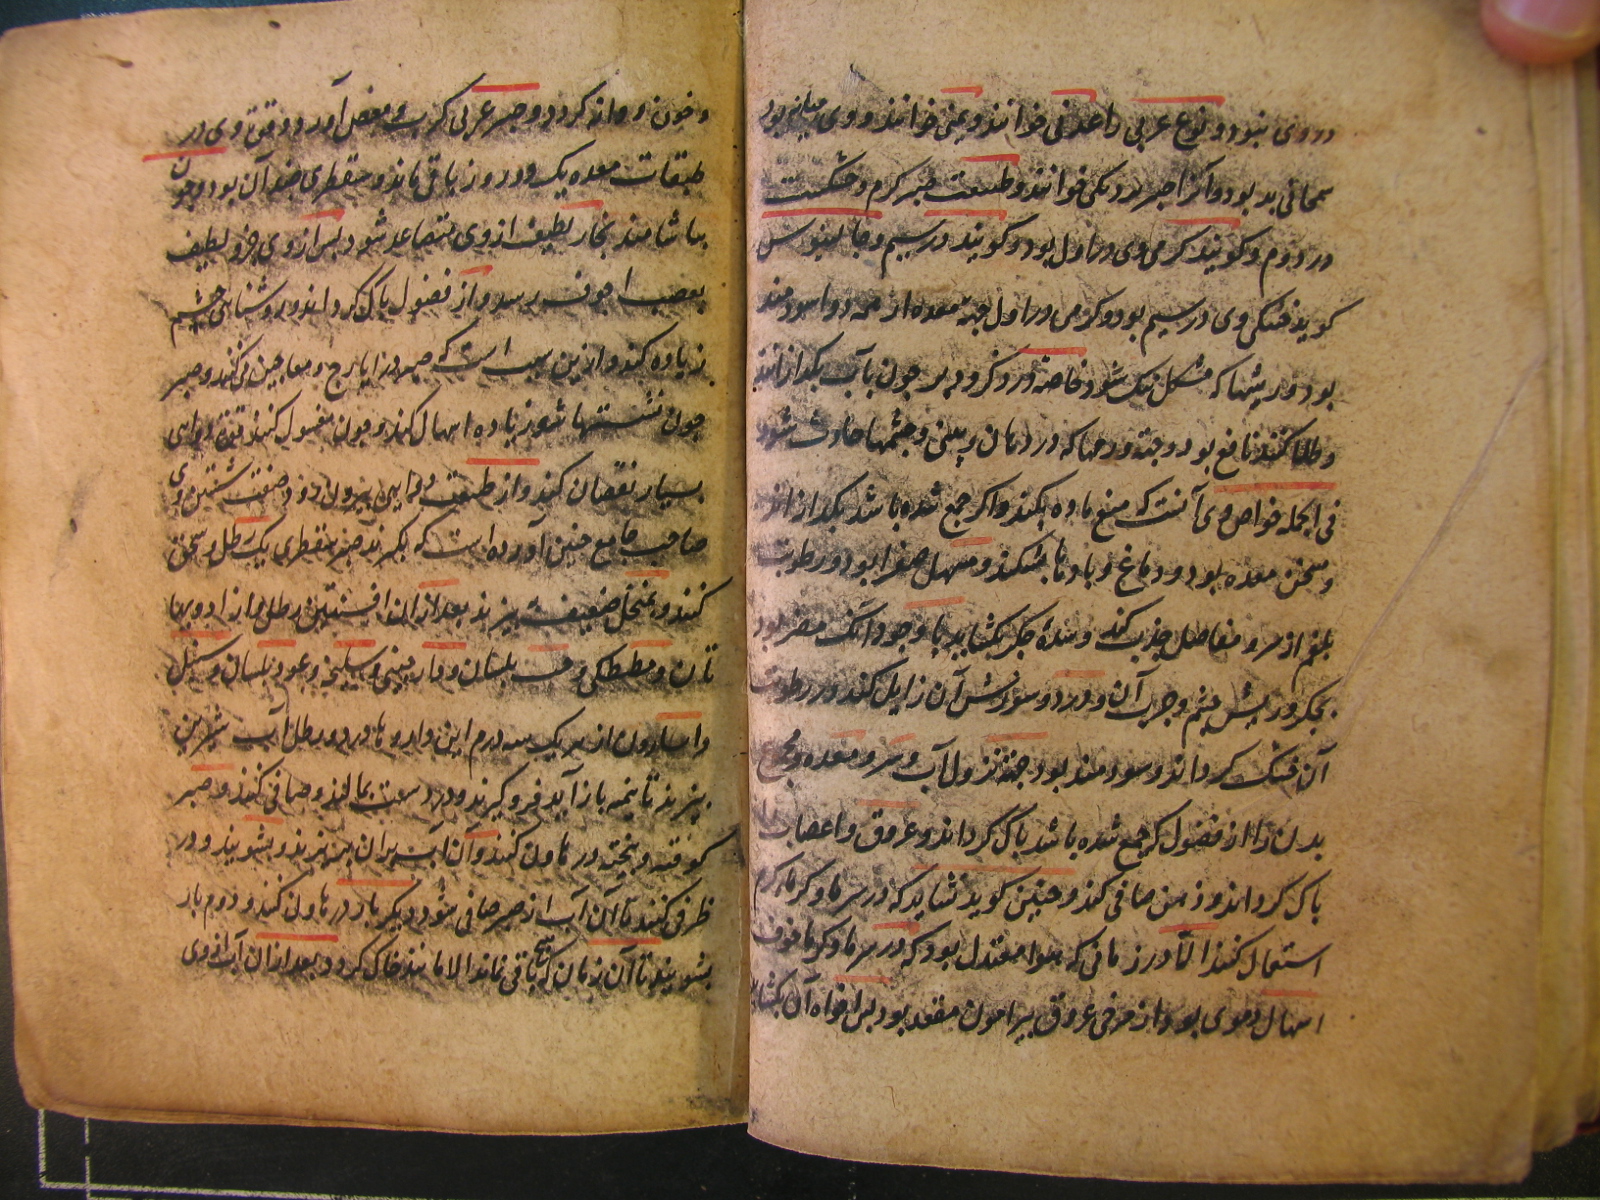 در وی نبود و نوع عربی را عدنی خوانند و یمنی خوانند و وی میانه بود
سمحانی بد بود و آنرا صبر بردمکی خوانند و طبیعت صبر گرم و خشکست
در دوم و گویند گرمی وی در اول بود و گویند در سیم و جالینوس
گوید خشکی وی در سیم بود و گرمی در اول جهة معده از همه دوا سودمند
بود و ریشها که مشکل نیک شود خاصه در د کر و دبر چون بآب بگدازانند
و طلا کنند نافع بود و جهة ورمها که در دهان و بینی و چشمها حادث شود
فی الجمله خواص وی آنست که منع ماده بکند و اگر جمع شده باشد بگدازاند
و مسخن معده بود و دماغ و بادها بشکند و مسهل صفرا بود و رطوبت
بلغم از سر و مفاصل جذب کند و سده جگر بکشاید با وجود آنک مضر بود
بجگر و ریش چشم و جرب آن و درد و سوزش آن زایل کند و رطوبت
آن خشک کرداند و سودمند بود جهة نزول آب و سر و معده و مجموع
بدن را از فضول که جمع شده باشد پاک کرداند و عروق و اعصاب را
پاک کرداند و ذهن صافی کند و چنین گوید نشاید که در سرما و کرما گرم
استعمال کنند الا در زمانی که هوا معتدل بود که در سرما و کرما خوف
اسهال دموی بود از حرقی عروق پیرامون مقعد بود پس افواه آن بکشاید
و خون روانه کردد و صبر عربی کرب و مغص آورد و قوة وی در
طبقات معده یک و دو روز باقی ماند و سقطری ضد آن بود و چون
بیاشامند بخار لطیف از وی متصاعد شود پس از وی جزو لطیف
بعصب اجوف رسد و از فضول پاک کرداند و روشنایی چشم
زیاده کند و ازین سبب است که صبر در ایارج و معاجین می کنند و صبر
چون نشسته شود زیاده اسهال کند و چون مغسول کنند قوة دوایی
بسیار نقصان کند و از طبیعت دوایی بیرون رود و صفت شستن وی
صاحب جامع چنین آورده است که بکیرند صبر سقطری یک رطل و سحق
کنند و بمنخل ضعیف بیزند بعد از آن افسنتین رطلی و از ادویها
تان و مصطکی و حب بلسان و دارچینی و سلیخه و عود بلسان و سنبل
و اسارون از هر یک سه درم این داروها در دو رطل آب شیرین
بپزند تا بنیمه باز آید فرو کیرند و در دست بمالند و صافی کنند و صبر
کوفته و پخته در هاون کنند و آن آب بران بریزند و بشویند و در
ظرفی کنند تا آن آب از صبر صافی شود دیکر بار در هاون کنند و دوم بار
بشویند تا آن زمان که هیچ باقی نماند الا مانند خاک کرد و بعد از آن آب از وی